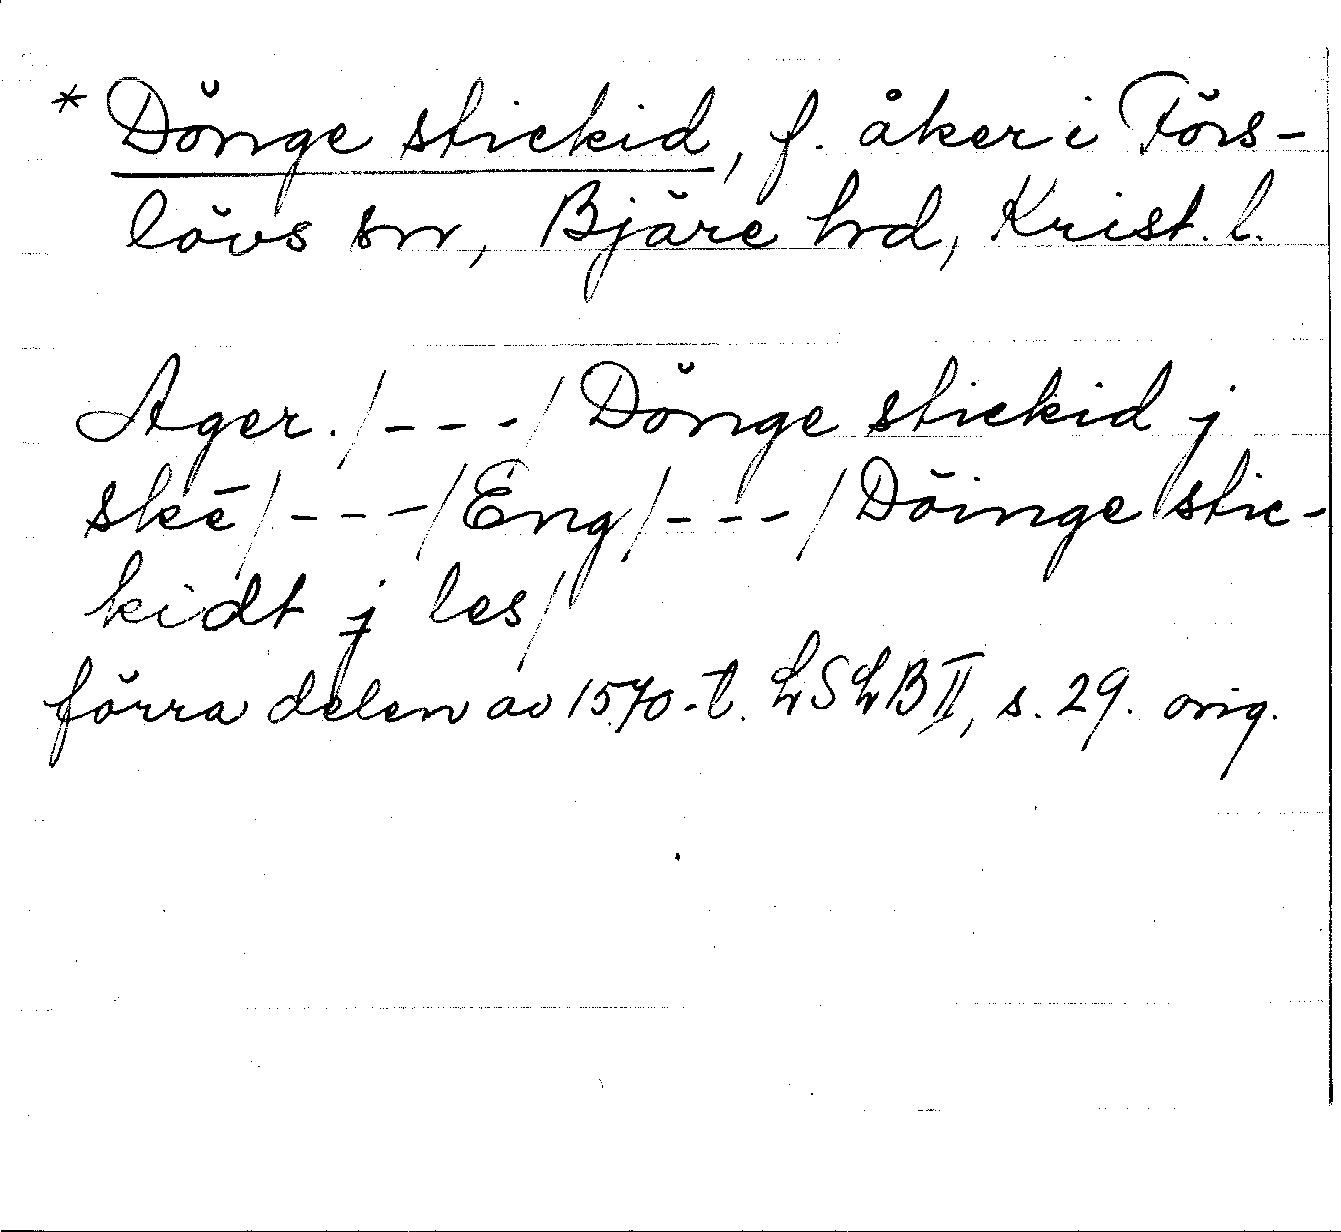 * Dönge stickid, f. åker i Förs-
lövs sn, Bjäre hd, Krist. l.
Ager. /---/ Dönge stickid j
skē /---/ Eng /---/ Döinge stic-
kidt j les /
förra delen av 1570-t. LSLB II, s. 29. orig.